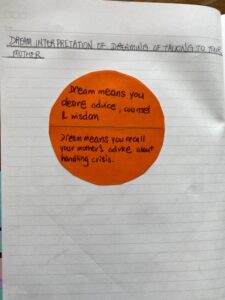 DREAM INTERPRETATION OF DREAMING OF TALKING TO YOUR
MOTHER
Dream means you
desire advice, counsel
& wisdom
Dream means you recall
your mother's advice about
handling crisis.